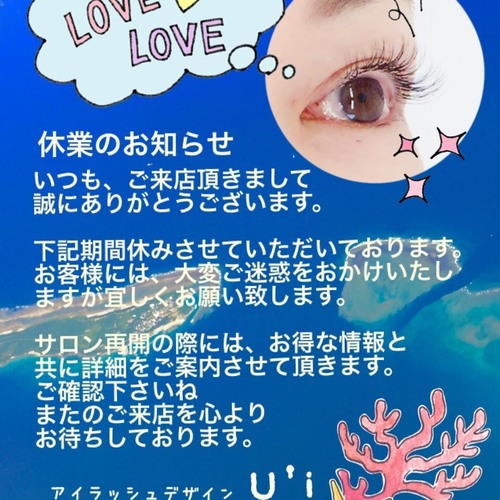 LOVE
LOVE
休業のお知らせ
いつも、ご来店頂きまして
誠にありがとうございます。
下記期間休みさせていただいております。
お客様には、大変ご迷惑をおかけいたし
ますが宜しくお願い致します。
サロン再開の際には、お得な情報と
共に詳細をご案内させて頂きます。
ご確認下さいね
またのご来店を心より
お待ちしております。
アイラッシュデザイン U'i